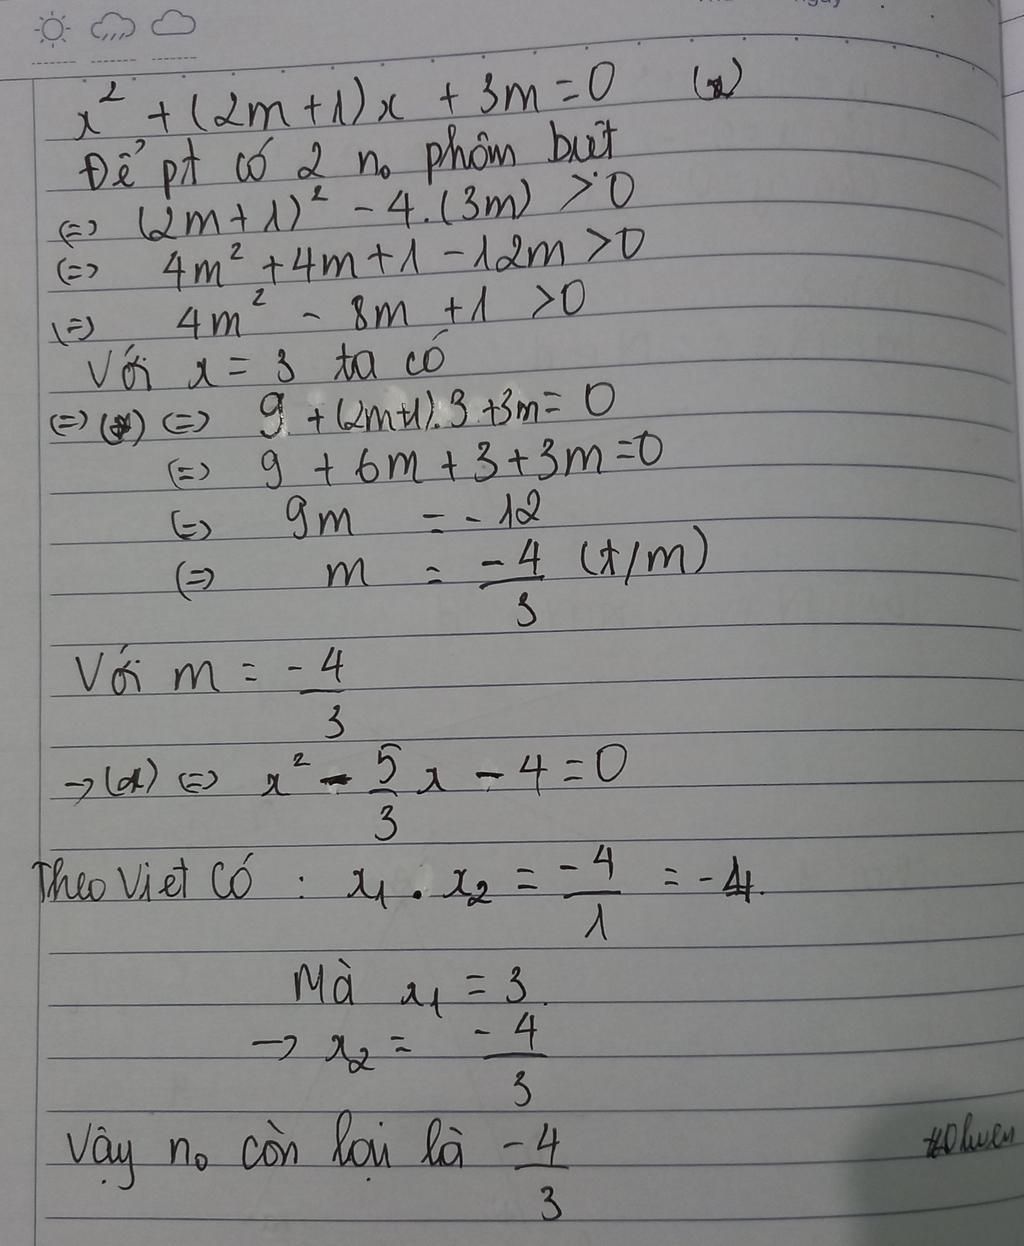 x² + (2m+1)x + 3m = 0 (*)
Để pt có 2 no phâm buiết
(=) (2m+1)² - 4.(3m) > 0
(=) 4m² + 4m + 1 - 12m > 0
(=) 4m² - 8m + 1 > 0
Với x = 3 ta có
(=) (*) (=) 9 + (2m+1).3 + 3m = 0
(=) 9 + 6m + 3 + 3m = 0
(=) 9m = -12
(=) m = -4/3 (t/m)
Với m = -4/3
→ (*) (=) x² - 5/3 x - 4 = 0
Theo Viet có : x₁ . x₂ = -4/1 = -4.
Mà x₁ = 3.
→ x₂ = -4/3
Vậy no còn lại là -4/3